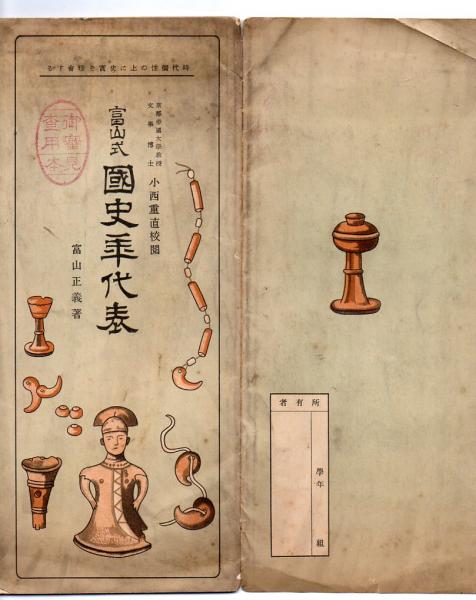 時代個性の上に史實を理會する
御審見
査用本
京都帝國大學教授
文學博士
小西重直校閲
富山式
國史年代表
富山正義著
所有者
學年
組